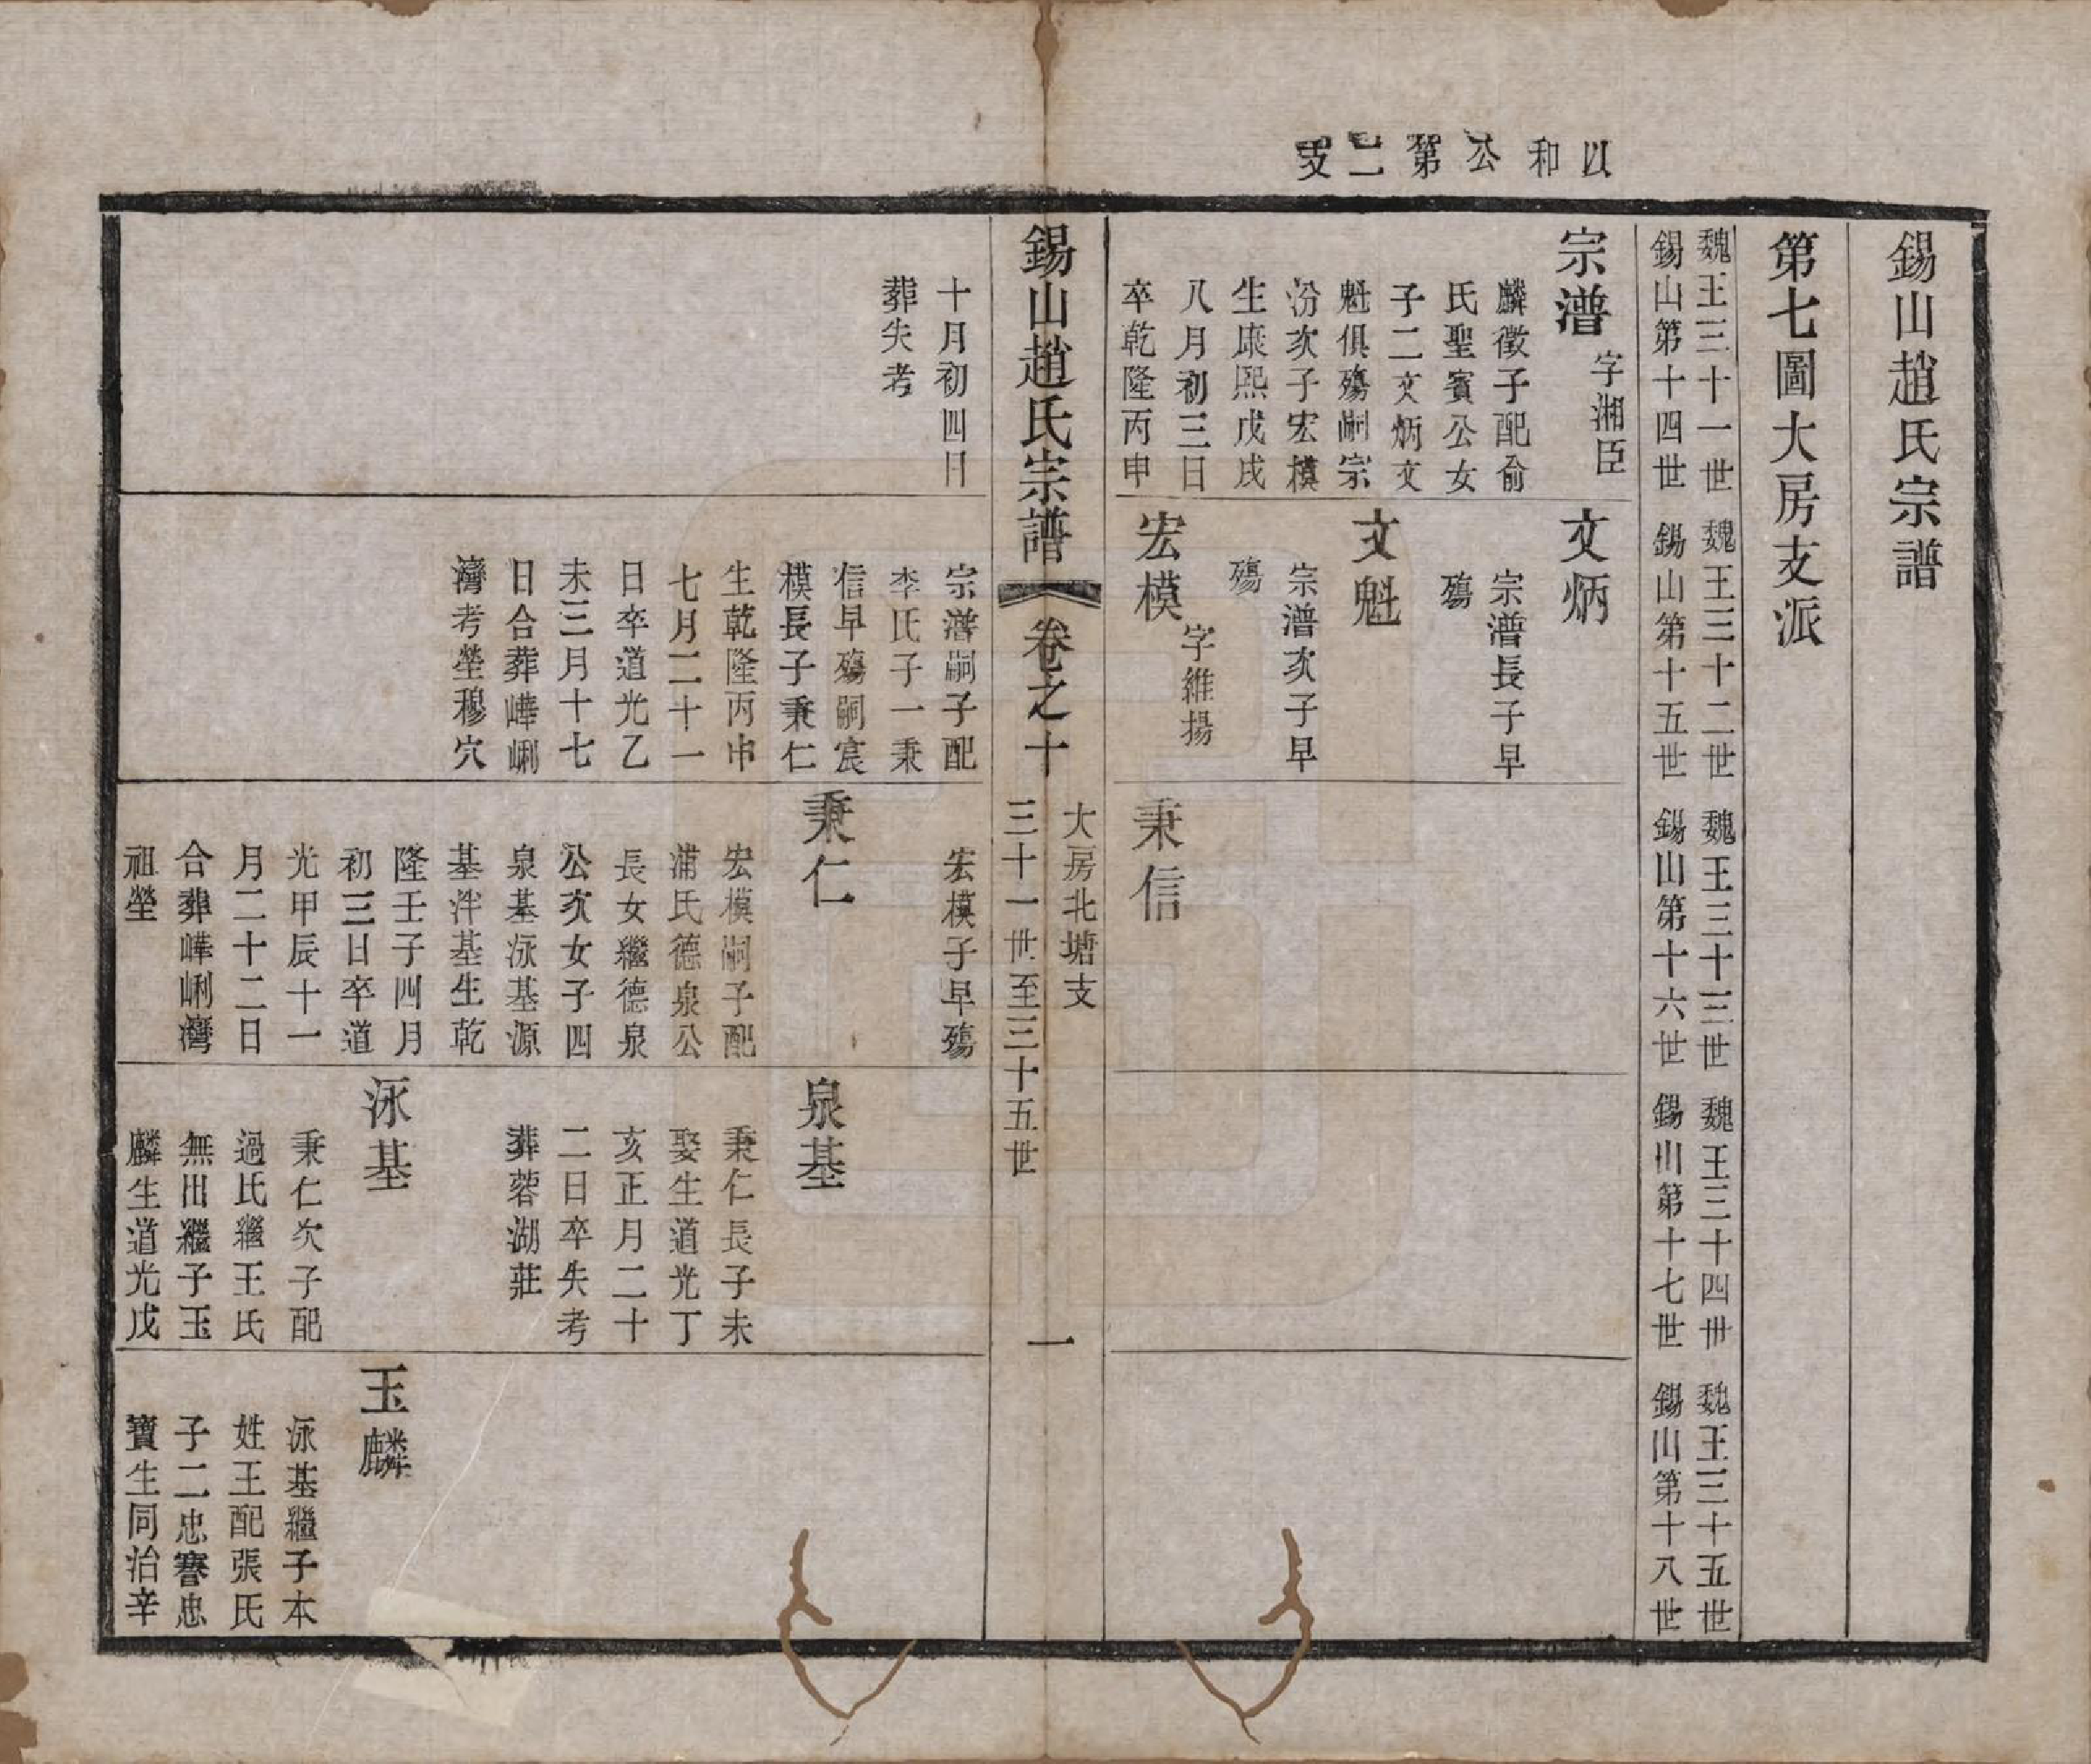 以和公第二支
錫山趙氏宗譜
第七圖大房支派
魏王三十一世
錫山第十四世
魏王三十二世
錫山第十五世
魏王三十三世
錫山第十六世
魏王三十四世
錫山第十七世
魏王三十五世
錫山第十八世
宗潽
字湘臣
麟徵子配俞
氏聖賓公女
子二文炳文
魁俱殤嗣宗
汾次子宏模
生康熙戊戌
八月初三日
卒乾隆丙申
文炳
宗潽長子早
殤
文魁
宗潽次子早
殤
宏模
字維揚
秉信
錫山趙氏宗譜
卷之十
大房北塘支
三十一世至三十五世
一
十月初四日
葬失考
宗潽嗣子配
李氏子一秉
信早殤嗣宸
模長子秉仁
生乾隆丙申
七月二十一
日卒道光乙
未三月十七
日合葬嶂峢
灣考塋穆穴
宏模子早殤
秉仁
宏模嗣子配
浦氏德泉公
長女繼德泉
公次女子四
泉基泳基源
基泮基生乾
隆壬子四月
初三日卒道
光甲辰十一
月二十二日
合葬嶂峢灣
祖塋
泉基
秉仁長子未
娶生道光丁
亥正月二十
二日卒失考
葬蓉湖莊
泳基
秉仁次子配
過氏繼王氏
無出繼子玉
麟生道光戊
玉麟
泳基繼子本
姓王配張氏
子二忠謇忠
寶生同治辛